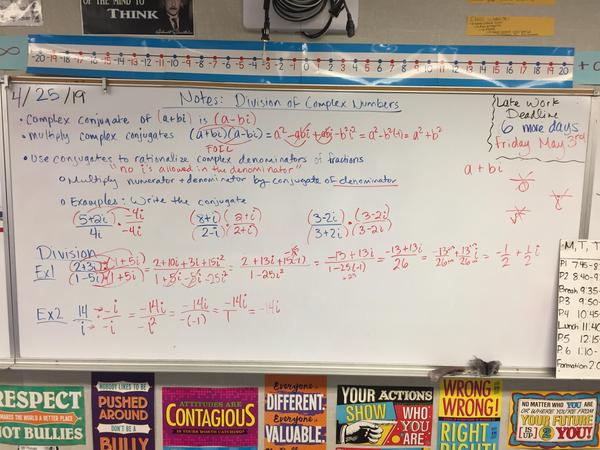 OF THE MIND TO
THINK
-20 -19 -18 -17 -16 -15 -14 -13 -12 -11 -10 -9 -8 -7 -6 -5 -4 -3 -2 -1 0 1 2 3 4 5 6 7 8 9 10 11 12 13 14 15 16 17 18 19 20
4/25/19
Notes: Division of Complex Numbers
• Complex conjugate of (a+bi) is (a-bi)
• multiply complex conjugates (a+bi)(a-bi) = a² - abi + abi - b²i² = a² - b²(-1) = a² + b²
FOIL
• Use conjugates to rationalize complex denominators of fractions
"no i's allowed in the denominator"
Multiply numerator + denominator by conjugate of denominator
Examples: Write the conjugate
(5+2i)/4i · -4i/-4i
(8+i)/(2-i) · (2+i)/(2+i)
(3-2i)/(3+2i) · (3-2i)/(3-2i)
Division
Ex1 (2+3i)/(1-5i) (1+5i)/(1+5i) = (2+10i+3i+15i²)/(1+5i-5i-25i²) = (2+13i+15(-1))/(1-25i²) = (-13+13i)/(1-25(-1)) = (-13+13i)/26 = -13/26 + 13i/26 = -1/2 + 1/2 i
Ex2 14/i · -i/-i = -14i/-i² = -14i/-(-1) = -14i/1 = -14i
Late Work
Deadline
6 more days
Friday May 3rd
a + bi
M, T, T
P1 7:45-8
P2 8:40-9
Break 9:35
P3 9:50
P4 10:45
Lunch 11:40
P.5 12:15
P.6 1:10-
Formation 2:0
RESPECT
MAKES THE WORLD A BETTER PLACE
NOT BULLIES
NOBODY LIKES TO BE
PUSHED
AROUND
DON'T BE A
BULLY
ATTITUDES ARE
CONTAGIOUS
IS YOURS WORTH CATCHING?
Everyone is
DIFFERENT.
Everyone is
VALUABLE.
YOUR ACTIONS
SHOW WHO
YOU ARE
WRONG IS
WRONG!
RIGHT IS
RIGHT!
NO MATTER WHO YOU ARE
OR WHERE YOU'RE FROM
YOUR FUTURE
IS UP 2 YOU!